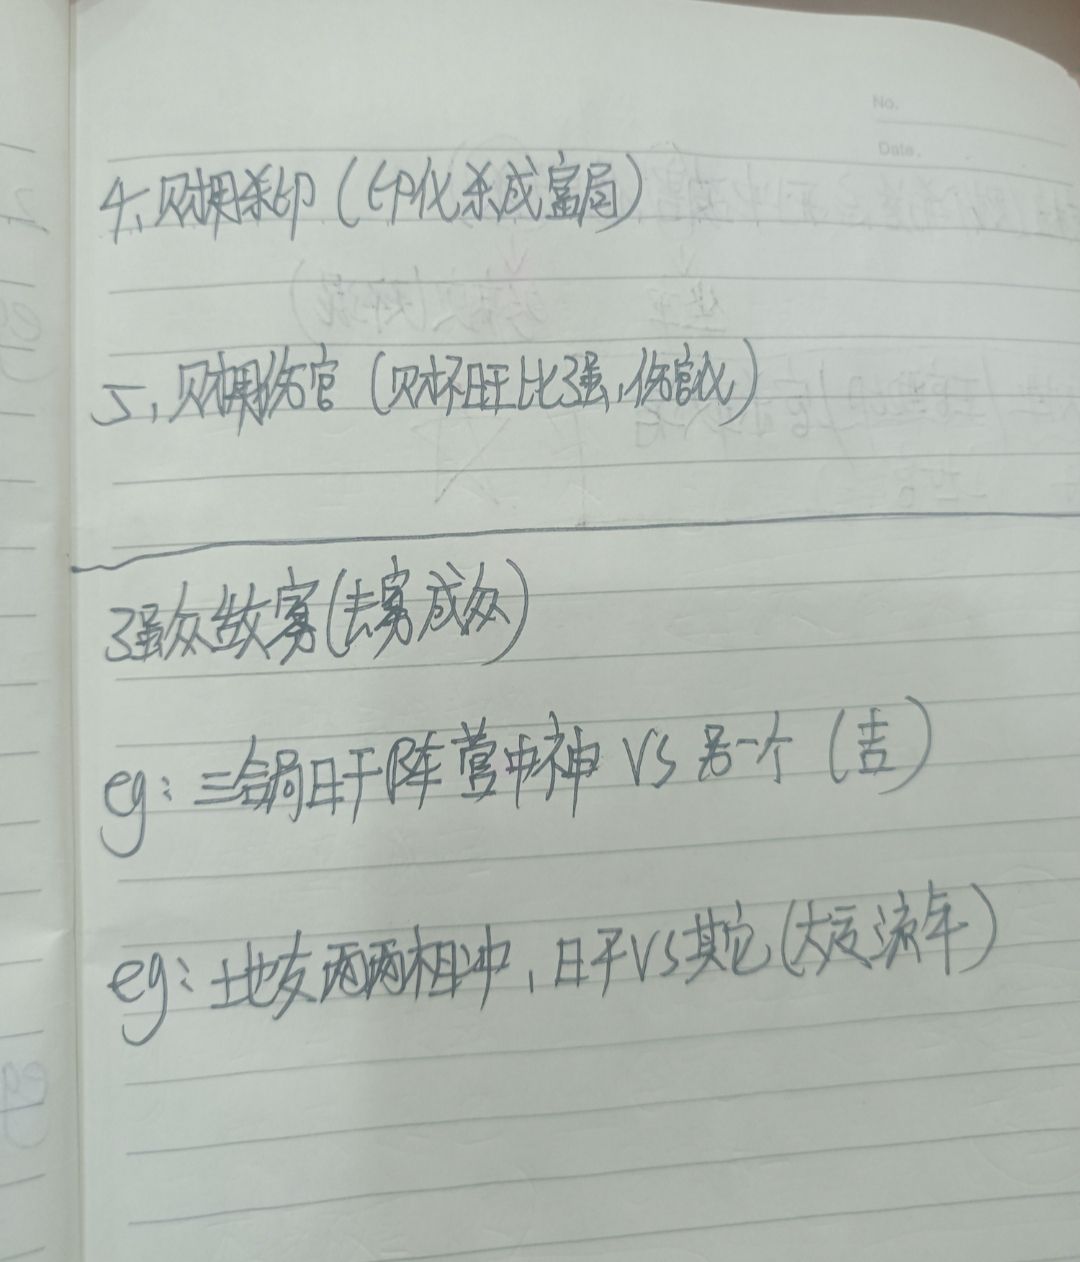 No.
Date.
4、财用杀印（印化杀成富局）
5、财用伤官（财不旺比强，伤官化）
强众敌寡（去寡成众）
eg：三合局日干阵营中神 VS 另一个（吉）
eg：土地支两两相冲，日干VS其它（大运流年）